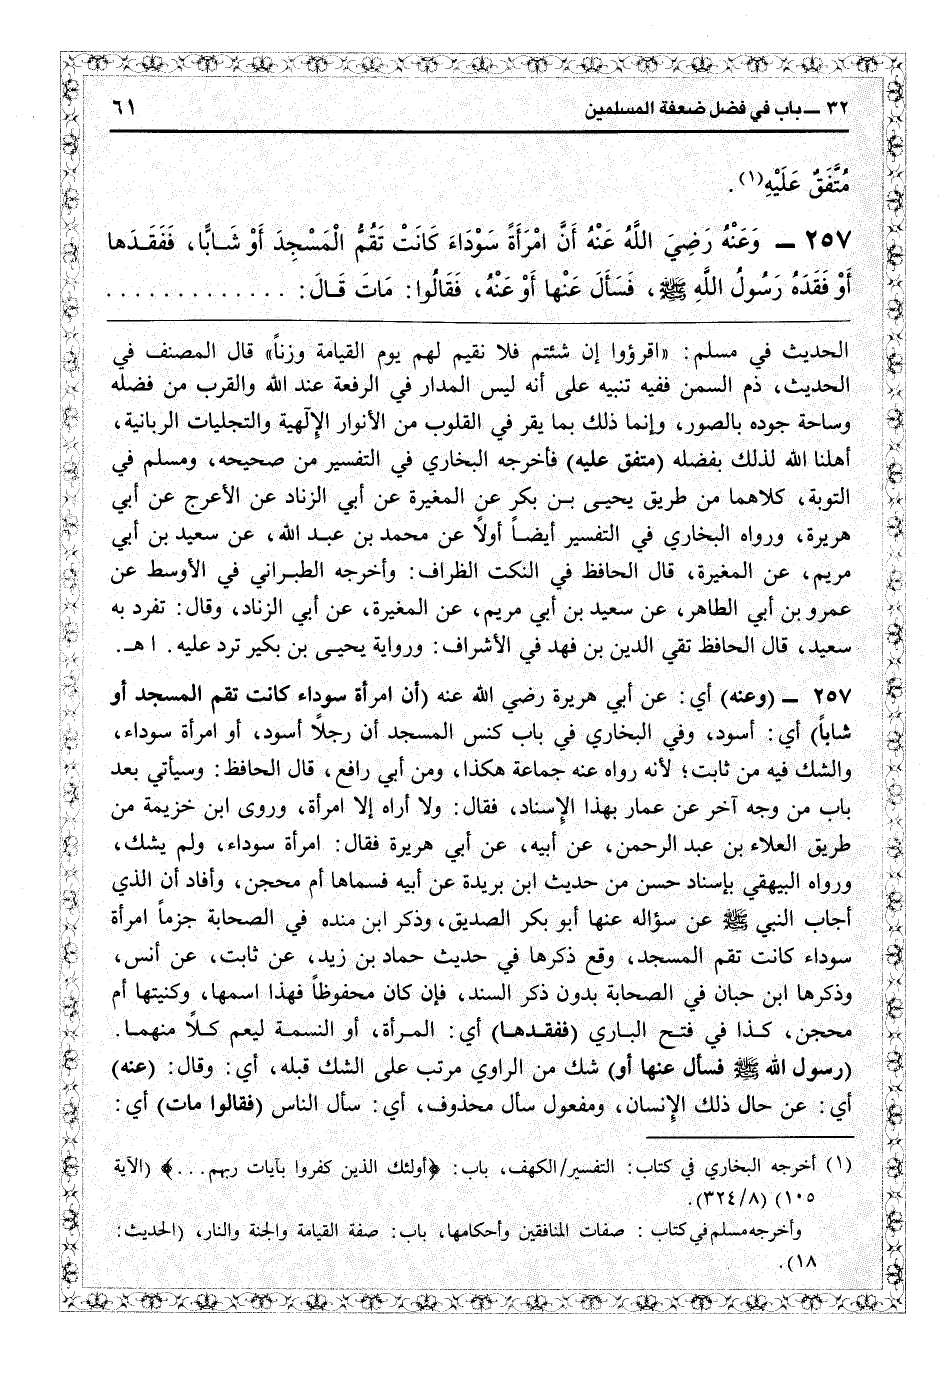 ٣٢ ــ باب في فضل ضعفة المسلمين
٦١
مُتَّفَقٌ عَلَيْهِ(١).
٢٥٧ ــ وَعَنْهُ رَضِيَ اللَّهُ عَنْهُ أَنَّ امْرَأَةً سَوْدَاءَ كَانَتْ تَقُمُّ الْمَسْجِدَ أَوْ شَـابًّا، فَفَقَـدَها
أَوْ فَقَدَهُ رَسُولُ اللَّهِ ﷺ، فَسَأَلَ عَنْها أَوْ عَنْهُ، فَقَالُوا: مَاتَ قَـالَ: . . . . . . . . . . . . .
الحديث في مسلم: «اقرؤوا إن شئتم فلا نقيم لهم يوم القيامة وزناً» قال المصنف في
الحديث، ذم السمن ففيه تنبيه على أنه ليس المدار في الرفعة عند الله والقرب من فضله
وساحة جوده بالصور، وإنما ذلك بما يقر في القلوب من الأنوار الإلٰهية والتجليات الربانية،
أهلنا الله لذلك بفضله (متفق عليه) فأخرجه البخاري في التفسير من صحيحه، ومسلم في
التوبة، كلاهما من طريق يحيـى بـن بكر عن المغيرة عن أبي الزناد عن الأعرج عن أبي
هريرة، ورواه البخاري في التفسير أيضـاً أولاً عن محمد بن عبـد الله، عن سعيد بن أبي
مريم، عن المغيرة، قال الحافظ في النكت الظراف: وأخرجه الطبـراني في الأوسط عن
عمرو بن أبي الطاهر، عن سعيد بن أبي مريم، عن المغيرة، عن أبي الزناد، وقال: تفرد به
سعيد، قال الحافظ تقي الدين بن فهد في الأشراف: ورواية يحيـى بن بكير ترد عليه. ا هـ.
٢٥٧ ــ (وعنه) أي: عن أبي هريرة رضي الله عنه (أن امرأة سوداء كانت تقم المسجد أو
شاباً) أي: أسود، وفي البخاري في باب كنس المسجد أن رجلاً أسود، أو امرأة سوداء،
والشك فيه من ثابت؛ لأنه رواه عنه جماعة هكذا، ومن أبي رافع، قال الحافظ: وسيأتي بعد
باب من وجه آخر عن عمار بهذا الإسناد، فقال: ولا أراه إلا امرأة، وروى ابن خزيمة من
طريق العلاء بن عبد الرحمن، عن أبيه، عن أبي هريرة فقال: امرأة سوداء، ولم يشك،
ورواه البيهقي بإسناد حسن من حديث ابن بريدة عن أبيه فسماها أم محجن، وأفاد أن الذي
أجاب النبي ﷺ عن سؤاله عنها أبو بكر الصديق، وذكر ابن منده في الصحابة جزماً امرأة
سوداء كانت تقم المسجد، وقع ذكرها في حديث حماد بن زيد، عن ثابت، عن أنس،
وذكرها ابن حبان في الصحابة بدون ذكر السند، فإن كان محفوظاً فهذا اسمها، وكنيتها أم
محجن، كـذا في فتـح البـاري (ففقـدهـا) أي: المـرأة، أو النسمـة ليعم كـلاً منهمـا.
(رسول الله ﷺ فسأل عنها أو) شك من الراوي مرتب على الشك قبله، أي: وقال: (عنه)
أي: عن حال ذلك الإنسان، ومفعول سأل محذوف، أي: سأل الناس (فقالوا مات) أي:
(١) أخرجه البخاري في كتاب: التفسير/الكهف، باب: ﴿أولئك الذين كفروا بآيات ربهم...﴾ (الآية
١٠٥) (٣٢٤/٨).
وأخرجه مسلم في كتاب: صفات المنافقين وأحكامها، باب: صفة القيامة والجنة والنار، (الحديث:
١٨).